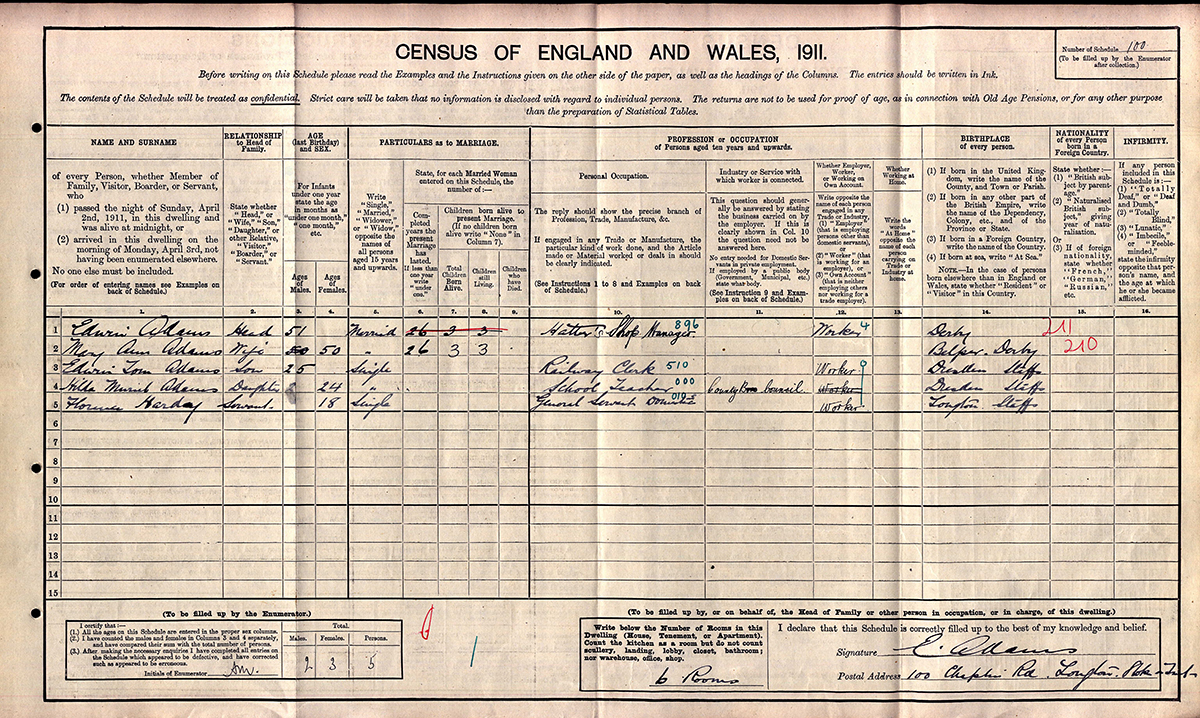 CENSUS OF ENGLAND AND WALES, 1911.
Number of Schedule 100
(To be filled up by the Enumerator
after collection.)
Before writing on this Schedule please read the Examples and the Instructions given on the other side of the paper, as well as the headings of the Columns. The entries should be written in Ink.
The contents of the Schedule will be treated as confidential. Strict care will be taken that no information is disclosed with regard to individual persons. The returns are not to be used for proof of age, as in connection with Old Age Pensions, or for any other purpose
than the preparation of Statistical Tables.
NAME AND SURNAME
of every Person, whether Member of
Family, Visitor, Boarder, or Servant,
who
(1) passed the night of Sunday, April
2nd, 1911, in this dwelling and
was alive at midnight, or
(2) arrived in this dwelling on the
morning of Monday, April 3rd, not
having been enumerated elsewhere.
No one else must be included.
(For order of entering names see Examples on
back of Schedule.)
RELATIONSHIP
to Head of
Family.
State whether
"Head," or
"Wife," "Son,"
"Daughter," or
other Relative,
"Visitor,"
"Boarder," or
"Servant."
AGE
(last Birthday)
and SEX.
For Infants
under one year
state the age
in months as
"under one month,"
"one month,"
etc.
Ages
of
Males.
Ages
of
Females.
PARTICULARS as to MARRIAGE.
Write
"Single,"
"Married,"
"Widower,"
or "Widow,"
opposite the
names of
all persons
aged 15 years
and upwards.
State, for each Married Woman
entered on this Schedule, the
number of :—
Completed
years the
present
Marriage
has
lasted.
If less than
one year
write
"under
one."
Children born alive to
present Marriage.
(If no children born
alive write "None" in
Column 7).
Total
Children
Born
Alive.
Children
still
Living.
Children
who
have
Died.
PROFESSION or OCCUPATION
of Persons aged ten years and upwards.
Personal Occupation.
The reply should show the precise branch of
Profession, Trade, Manufacture, &c.
If engaged in any Trade or Manufacture, the
particular kind of work done, and the Article
made or Material worked or dealt in should
be clearly indicated.
(See Instructions 1 to 8 and Examples on back
of Schedule.)
Industry or Service with
which worker is connected.
This question should generally
be answered by stating
the business carried on by
the employer. If this is
clearly shown in Col. 10
the question need not be
answered here.
No entry needed for Domestic Servants
in private employment.
If employed by a public body
(Government, Municipal, etc.)
state what body.
(See Instruction 9 and Examples
on back of Schedule.)
Whether Employer,
Worker,
or Working on
Own Account.
Write opposite the
name of each person
engaged in any
Trade or Industry,
(1) "Employer"
(that is employing
persons other than
domestic servants),
or
(2) "Worker" (that
is working for an
employer), or
(3) "Own Account"
(that is neither
employing others
nor working for a
trade employer).
Whether
Working at
Home.
Write the
words
"At Home"
opposite the
name of
each person
carrying on
Trade or
Industry at
home.
BIRTHPLACE
of every person.
(1) If born in the United Kingdom,
write the name of the
County, and Town or Parish.
(2) If born in any other part of
the British Empire, write
the name of the Dependency,
Colony, etc., and of the
Province or State.
(3) If born in a Foreign Country,
write the name of the Country.
(4) If born at sea, write "At Sea."
NOTE.—In the case of persons
born elsewhere than in England or
Wales, state whether "Resident" or
"Visitor" in this Country.
NATIONALITY
of every Person
born in a
Foreign Country.
State whether :—
(1) "British subject
by parentage."
(2) "Naturalised
British subject,"
giving
year of naturalisation.
Or
(3) If of foreign
nationality,
state whether
"French,"
"German,"
"Russian,"
etc.
INFIRMITY.
If any person
included in this
Schedule is :—
(1) "Totally
Deaf," or "Deaf
and Dumb,"
(2) "Totally
Blind,"
(3) "Lunatic,"
(4) "Imbecile,"
or "Feeble-minded,"
state the infirmity
opposite that person's
name, and
the age at which
he or she became
afflicted.
1. 2. 3. 4. 5. 6. 7. 8. 9. 10. 11. 12. 13. 14. 15. 16.
1 Edwin Adams Head 51 Married 26 3 3 Hatter's Shop Manager 896 Worker 4 Derby 211
2 Mary Ann Adams Wife 50 50 " 26 3 3 Belper. Derby 210
3 Edwin Tom Adams Son 25 Single Railway Clerk 510 Worker 9 Dresden Staffs
4 Hilda Adams Daughter 24 " School Teacher 000 County Council Worker Dresden Staffs
5 Florence Harday Servant 18 Single General Servant Domestic 010 Worker Longton Staffs
6
7
8
9
10
11
12
13
14
15
(To be filled up by the Enumerator.)
I certify that :—
(1.) All the ages on this Schedule are entered in the proper sex columns.
(2.) I have counted the males and females in Columns 3 and 4 separately,
and have compared their sum with the total number of persons.
(3.) After making the necessary enquiries I have completed all entries on
the Schedule which appeared to be defective, and have corrected
such as appeared to be erroneous.
Initials of Enumerator
Total.
Males. Females. Persons.
2 3 5
6
1
(To be filled up by, or on behalf of, the Head of Family or other person in occupation, or in charge, of this dwelling.)
Write below the Number of Rooms in this
Dwelling (House, Tenement, or Apartment).
Count the kitchen as a room but do not count
scullery, landing, lobby, closet, bathroom;
nor warehouse, office, shop.
6 Rooms
I declare that this Schedule is correctly filled up to the best of my knowledge and belief.
Signature E. Adams
Postal Address 100 Chaplin Rd. Longton. Stoke on Trent